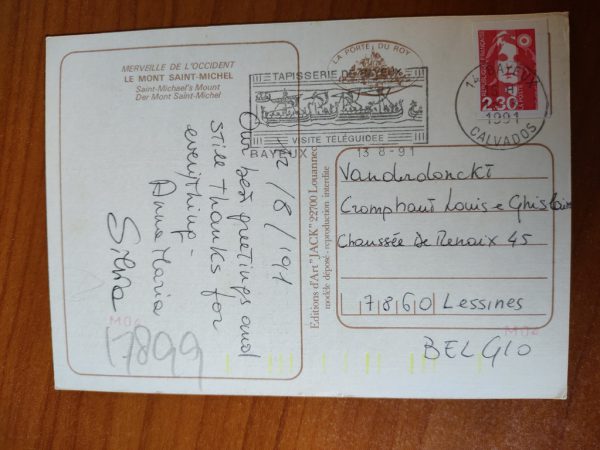 MERVEILLE DE L'OCCIDENT
LE MONT SAINT-MICHEL
Saint-Michael's Mount
Der Mont Saint-Michel
12/8/'91
Our best greetings and
still thanks for
everything-
Anna Maria
Silvia
M04
17899
Editions d'Art "JACK" 22700 Louannec
modèle déposé - reproduction interdite
LA PORTE DU ROY
TAPISSERIE DE BAYEUX
VISITE TÉLÉGUIDÉE
BAYEUX
13-8-91
14 BAYEUX
1991
CALVADOS
REPUBLIQUE FRANÇAISE
2,30
LA POSTE
Vanderdonckt
Cromphaut Louis e Ghislaine
Chaussée De Renaix 45
7860 Lessines
M04
BELGIO